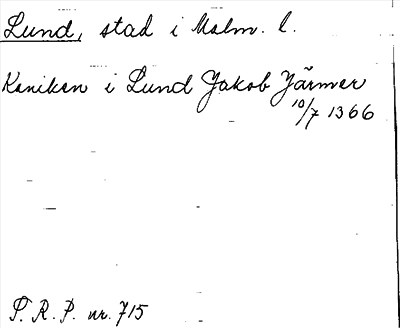 Lund, stad i Malm. l.
Kaniken i Lund Jakob Järmer
10/7 1366
S. R. P. nr. 715